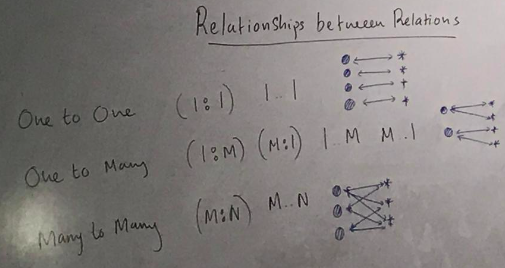 Relationships between Relations
One to One (1:1) 1..1
One to Many (1:M) (M:1) 1..M M..1
Many to Many (M:N) M..N